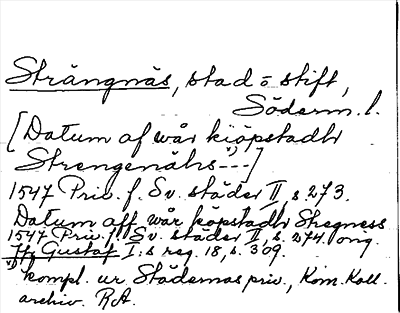 Strängnäs, stad o stift,
Söderm. l.
[Datum af wår kiöpstadh
Strengenähs---]x)
1547 Priv. f. Sv. städer II, s. 273.
Datum aff wår köpstadh Stregness
1547 Priv. f. Sv. städer II, s. 274 orig.
Jfr Gustaf I:s reg. 18, s. 309.
x) kompl. ur Städernas priv., Kom. Koll.
archiv. RA.